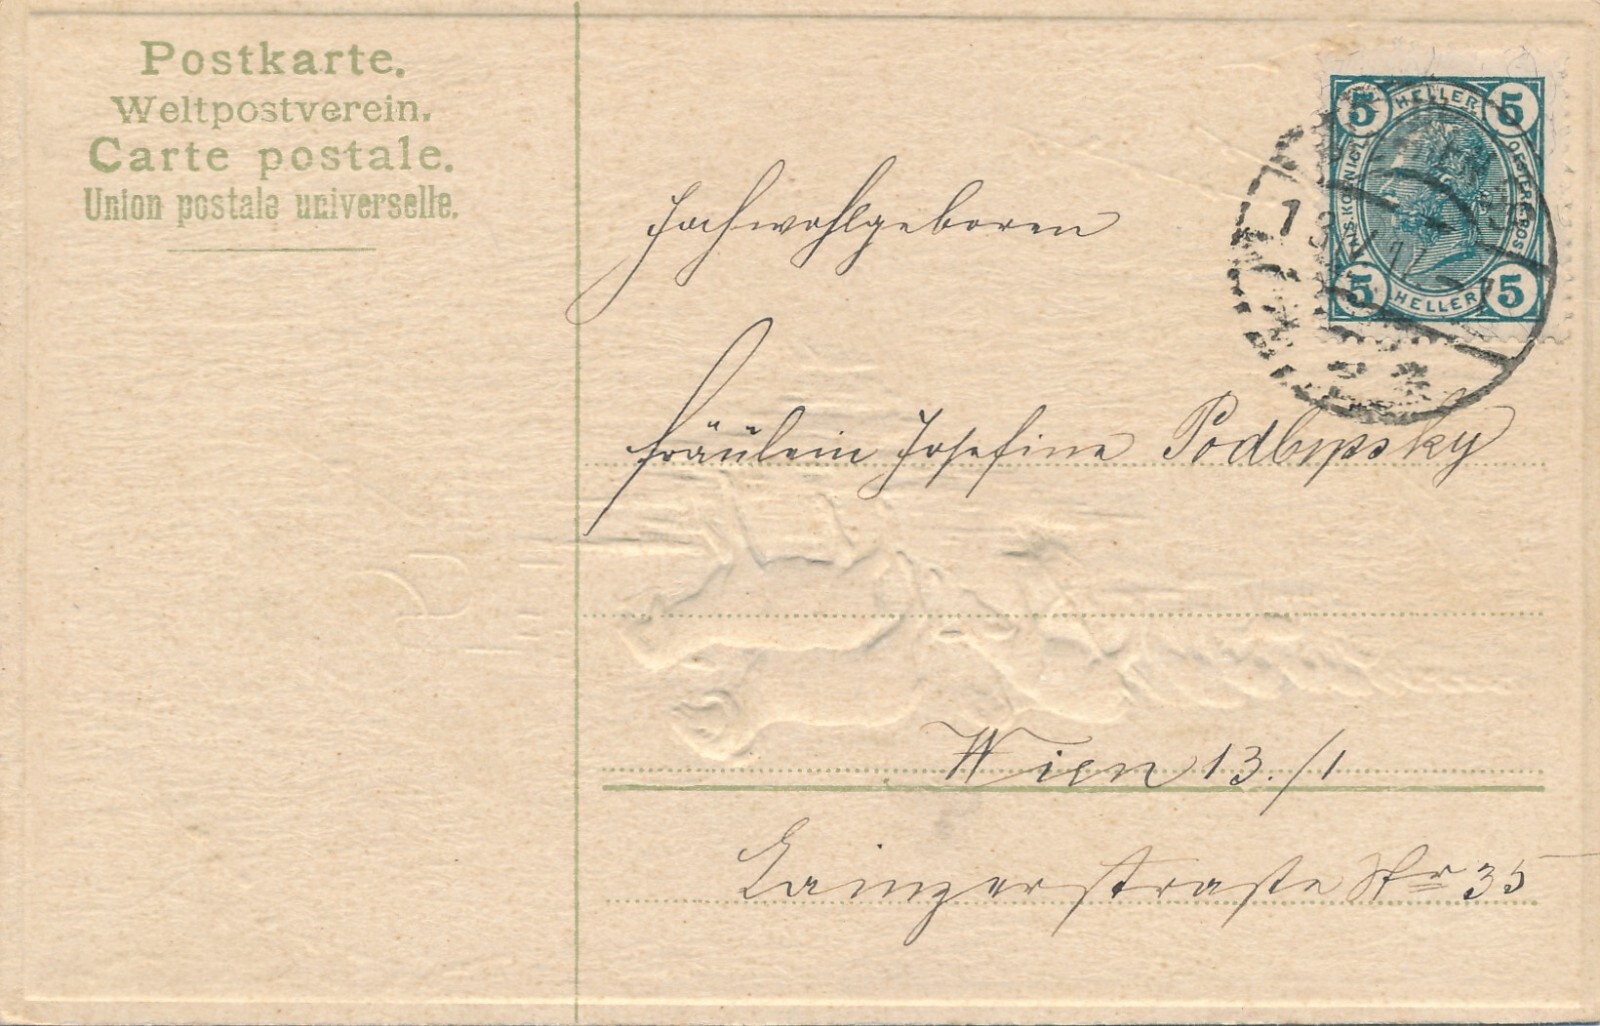 Postkarte.
Weltpostverein.
Carte postale.
Union postale universelle.
5 HELLER 5
KAIS. KÖNIGL. OESTERR. POST
5 HELLER 5
Hochwohlgeboren
Fräulein Josefine
Wien 13./1
Lainzerstraße Nr 35